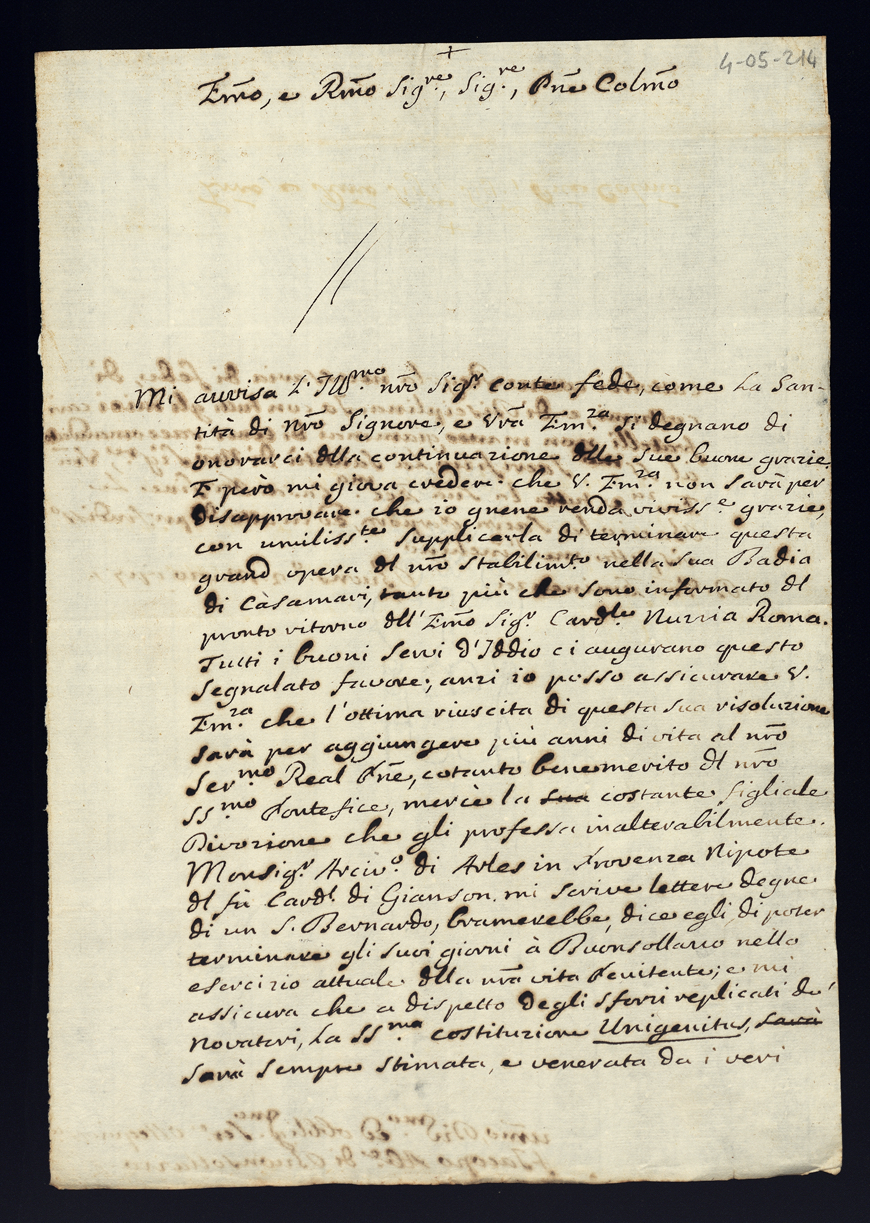 4-05-214
+
Em̃o, e Rm̃o Sig.re, Sig.re, Pñe Colm̃o
Mi avvisa L'Ill.mo nr̃o Sig.r conte fede, come La San-
tità di Nr̃o Signore, e Vr̃a Em.za si degnano di
onorarci dlla continuazione dlle sue buone grazie.
E però mi giova credere che V. Em.za non sarà per
disapprovare che io gnene renda viviss.e grazie,
con umiliss.te supplicarla di terminare questa
grand opera dl nr̃o stabilim.to nella sua Badia
di Càsamari, tanto più che sono informato dl
pronto ritorno dll'Em̃o Sig.r Card.le Nunzia Roma.
Tutti i buoni servi d'Iddio ci augurano questo
segnalato favore; anzi io posso assicurare V.
Em.za che l'ottima riuscita di questa sua risoluzione
sarà per aggiungere più anni di vita al nr̃o
Ser.mo Real Pñe, cotanto benemerito dl nr̃o
SS.mo Pontefice, mercè la sua costante figliale
Divozione che gli professa inalterabilmente.
Monsig.r Arciv.o di Arles in Provenza Nipote
dl fù Card.l di Gianson, mi scrive lettere degne
di un S. Bernardo, bramerebbe, dice egli, di poter
terminare gli suoi giorni à Buonsollazzo nello
esercizio attuale dlla nr̃a vita Penitente; e mi
assicura che a dispetto degli sforzi replicati de'
Novatori, La SS.ma costituzione Unigenitus, sarà
sarà sempre stimata, e venerata da i veri